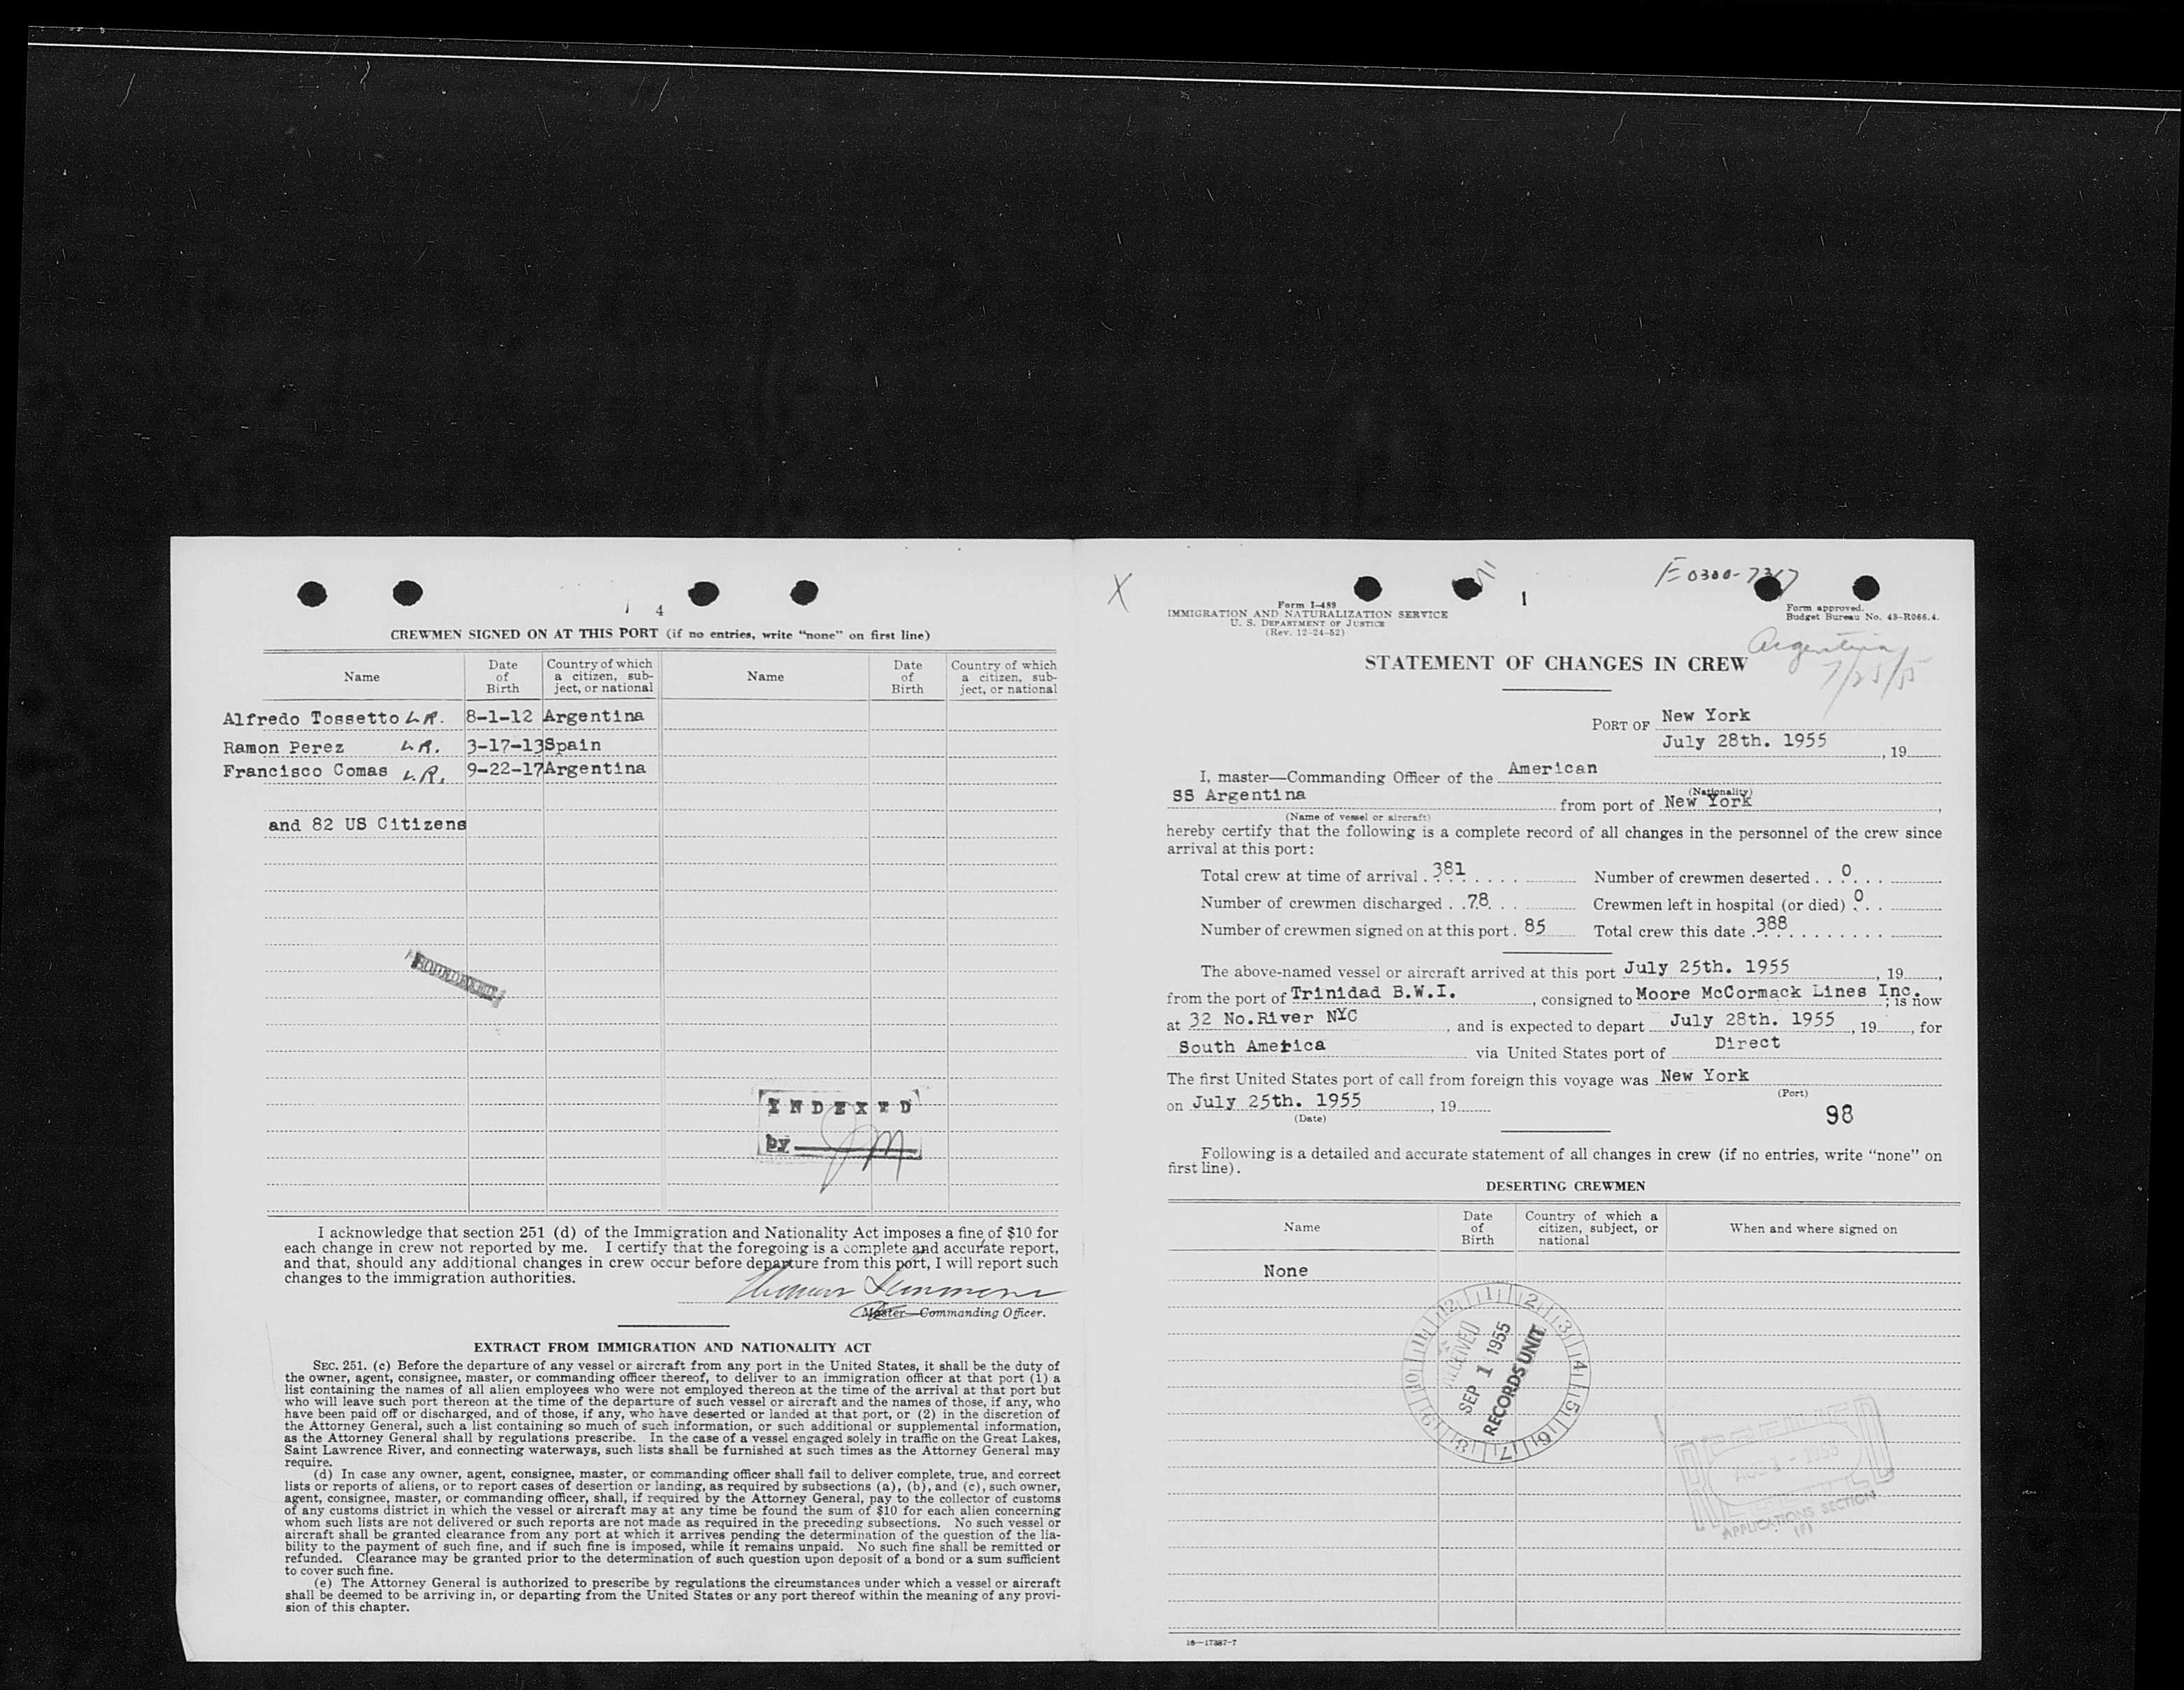 4
CREWMEN SIGNED ON AT THIS PORT (if no entries, write “none” on first line)
Name Date of Birth Country of which a citizen, subject, or national Name Date of Birth Country of which a citizen, subject, or national
Alfredo Tossetto L.R. 8-1-12 Argentina
Ramon Perez L.R. 3-17-13 Spain
Francisco Comas L.R. 9-22-17 Argentina
and 82 US Citizens
INDEXED
by JM
I acknowledge that section 251 (d) of the Immigration and Nationality Act imposes a fine of $10 for
each change in crew not reported by me. I certify that the foregoing is a complete and accurate report,
and that, should any additional changes in crew occur before departure from this port, I will report such
changes to the immigration authorities.
Thomas Simmons
Master—Commanding Officer.
EXTRACT FROM IMMIGRATION AND NATIONALITY ACT
SEC. 251. (c) Before the departure of any vessel or aircraft from any port in the United States, it shall be the duty of
the owner, agent, consignee, master, or commanding officer thereof, to deliver to an immigration officer at that port (1) a
list containing the names of all alien employees who were not employed thereon at the time of the arrival at that port but
who will leave such port thereon at the time of the departure of such vessel or aircraft and the names of those, if any, who
have been paid off or discharged, and of those, if any, who have deserted or landed at that port, or (2) in the discretion of
the Attorney General, such a list containing so much of such information, or such additional or supplemental information,
as the Attorney General shall by regulations prescribe. In the case of a vessel engaged solely in traffic on the Great Lakes,
Saint Lawrence River, and connecting waterways, such lists shall be furnished at such times as the Attorney General may
require.
(d) In case any owner, agent, consignee, master, or commanding officer shall fail to deliver complete, true, and correct
lists or reports of aliens, or to report cases of desertion or landing, as required by subsections (a), (b), and (c), such owner,
agent, consignee, master, or commanding officer, shall, if required by the Attorney General, pay to the collector of customs
of any customs district in which the vessel or aircraft may at any time be found the sum of $10 for each alien concerning
whom such lists are not delivered or such reports are not made as required in the preceding subsections. No such vessel or
aircraft shall be granted clearance from any port at which it arrives pending the determination of the question of the lia-
bility to the payment of such fine, and if such fine is imposed, while it remains unpaid. No such fine shall be remitted or
refunded. Clearance may be granted prior to the determination of such question upon deposit of a bond or a sum sufficient
to cover such fine.
(e) The Attorney General is authorized to prescribe by regulations the circumstances under which a vessel or aircraft
shall be deemed to be arriving in, or departing from the United States or any port thereof within the meaning of any provi-
sion of this chapter.
X
1
E 0300-7317
Form I-489
IMMIGRATION AND NATURALIZATION SERVICE
U. S. DEPARTMENT OF JUSTICE
(Rev. 12-24-52)
Form approved.
Budget Bureau No. 43-R066.4.
Argentina
7/25/55
STATEMENT OF CHANGES IN CREW
PORT OF New York
July 28th. 1955, 19
I, master—Commanding Officer of the American
(Nationality)
SS Argentina from port of New York,
(Name of vessel or aircraft)
hereby certify that the following is a complete record of all changes in the personnel of the crew since
arrival at this port:
Total crew at time of arrival 381 Number of crewmen deserted 0
Number of crewmen discharged 78 Crewmen left in hospital (or died) 0
Number of crewmen signed on at this port 85 Total crew this date 388
The above-named vessel or aircraft arrived at this port July 25th. 1955, 19,
from the port of Trinidad B.W.I., consigned to Moore McCormack Lines Inc.; is now
at 32 No.River NYC, and is expected to depart July 28th. 1955, 19, for
South America via United States port of Direct
The first United States port of call from foreign this voyage was New York
(Port)
on July 25th. 1955, 19
(Date)
98
Following is a detailed and accurate statement of all changes in crew (if no entries, write “none” on
first line).
DESERTING CREWMEN
Name Date of Birth Country of which a citizen, subject, or national When and where signed on
None
RECEIVED
SEP 1 1955
RECORDS UNIT
12 1 2 3 4 5 6 7 8 9 10 11
RECEIVED
AUG 1 - 1955
APPLICATIONS SECTION
(F)
16—17387-7